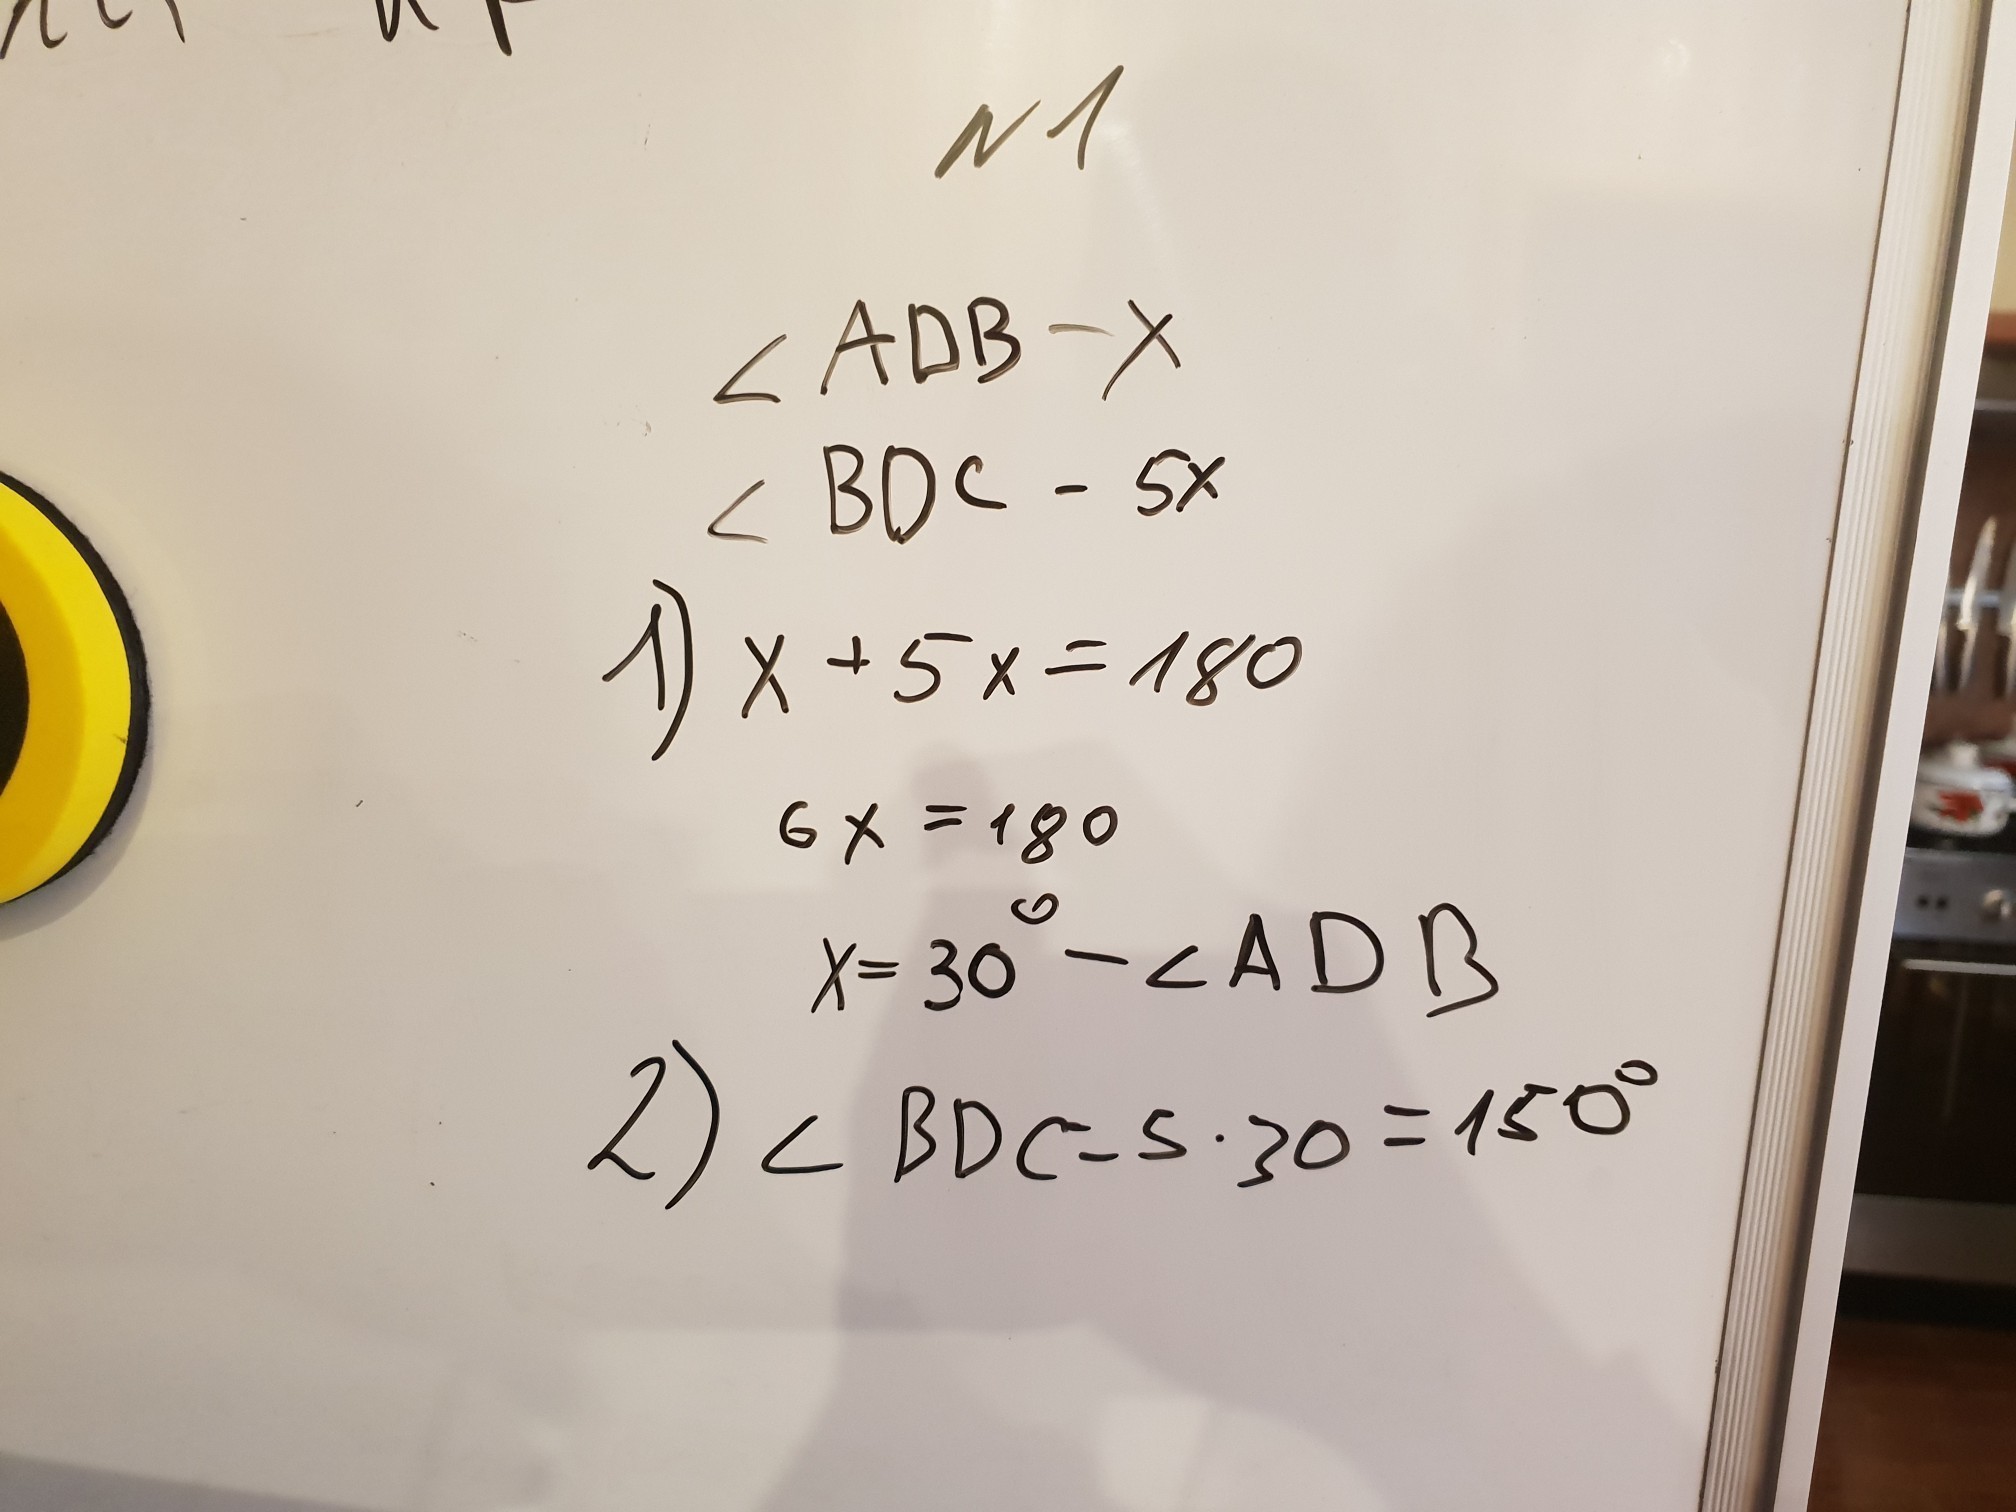 N1
∠ADB - x
∠BDC - 5x
1) x + 5x = 180
6x = 180
x = 30° - ∠ADB
2) ∠BDC = 5 · 30 = 150°